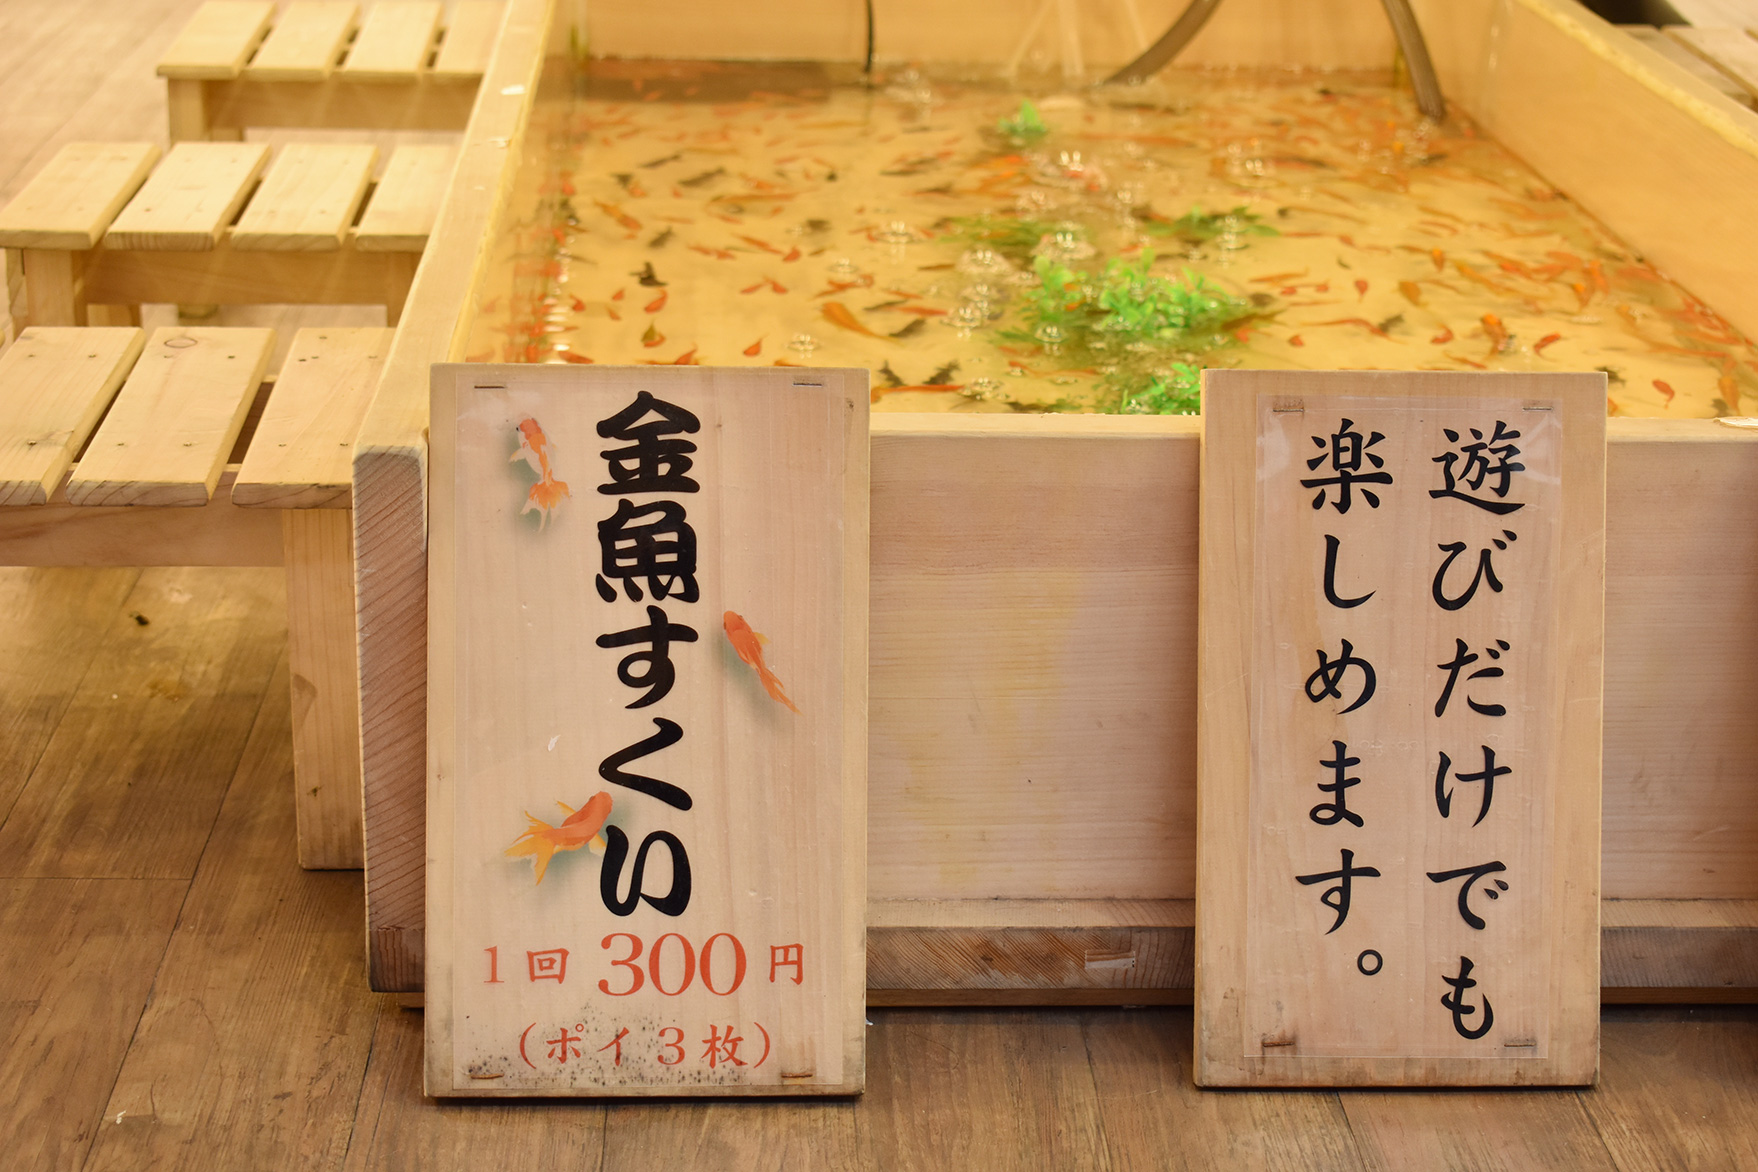 金魚すくい
1回 300円
（ポイ3枚）
遊びだけでも
楽しめます。